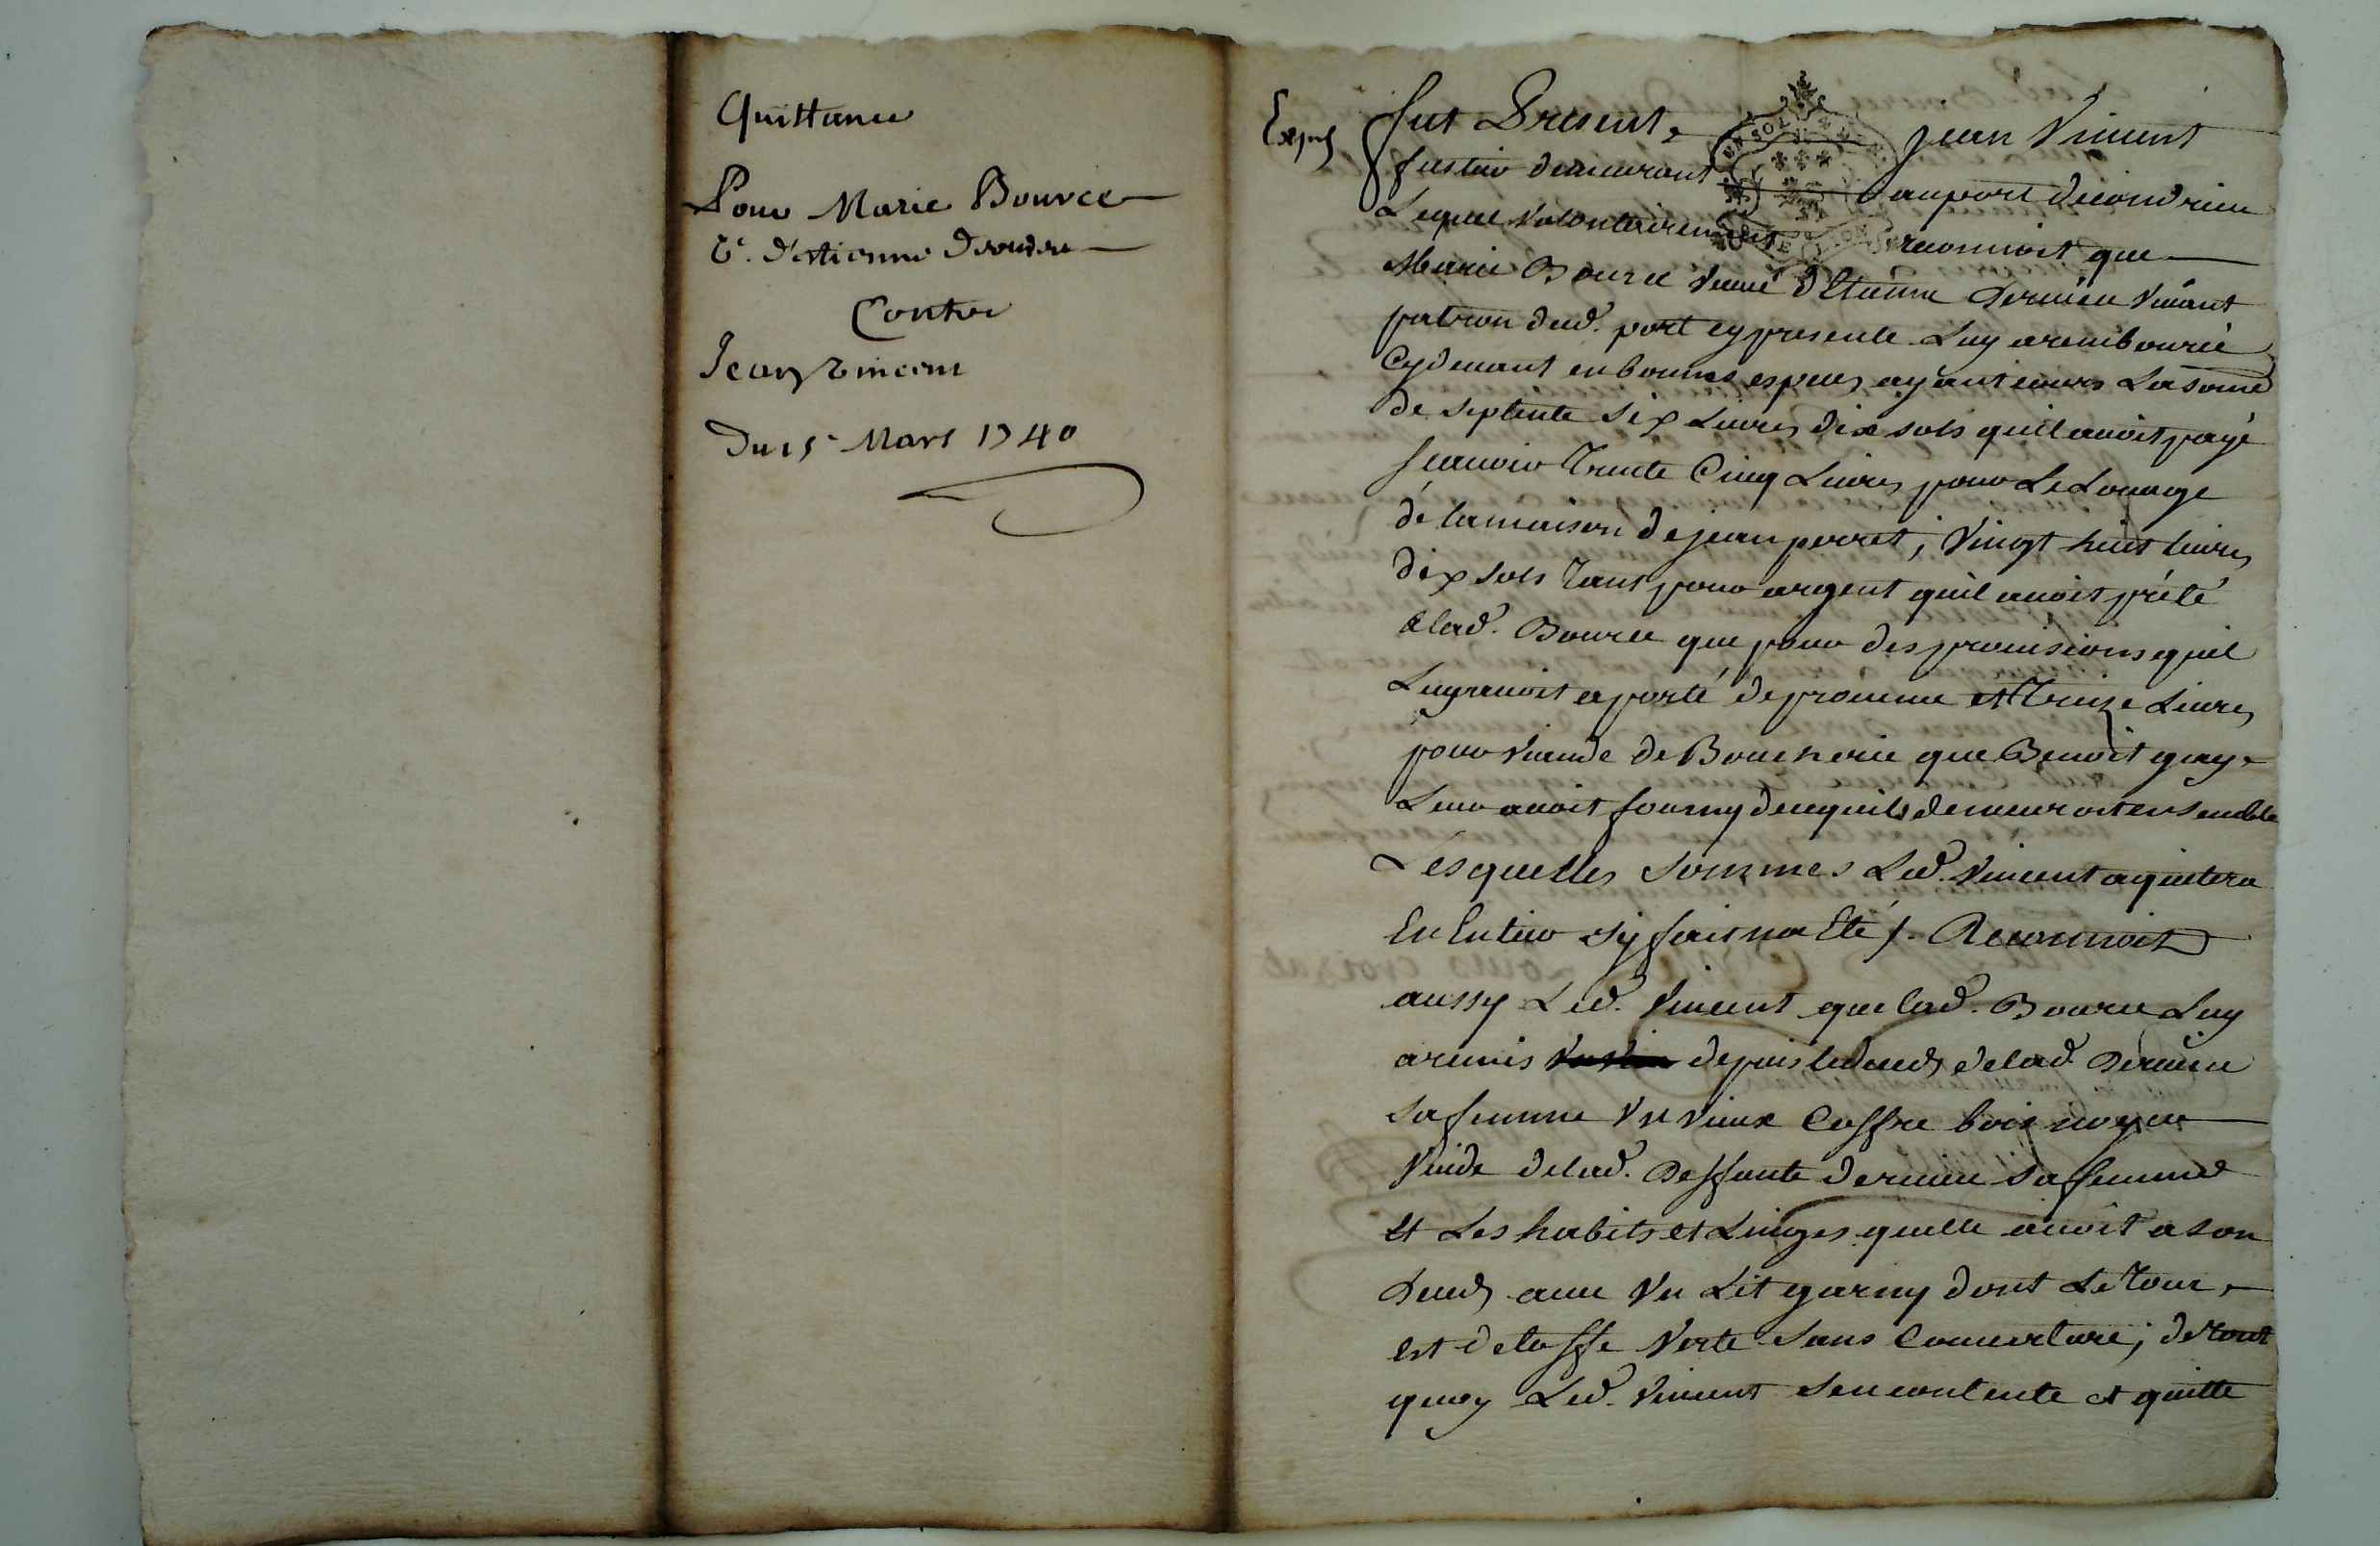 Quittance
Pour Marie Bource
V.e d'etienne
Contre
Jean Vincent
Du 15 Mars 1740
Exped
fut Present Jean Vincent
fustier demeurant au port de condrieu
Lequel volontairement reconnoit que
Marie Bource veuve d'Etienne dervieu vivant
patron dud. port cy presente Luy a rembourcé
Cydevant en bonnes especes ayant cours La somme
de septente six Livres dix sols quil avoit payé
scavoir Trente Cinq Livres pour Le Louage
de la maison de jean perret; Vingt huit livres
dix sols Tant pour argent quil avoit prété
a lad. Bource que pour des provisions quil
Luy avoit aporté de provence et Treize Livres
pour viande de Boucherie que Benoit gay
Leur avoit fourny demeuroit ensemble
Lesquelles sommes Led. Vincent aquitera
En Entier sy fait na Eté /. Reconnoit
aussy Led. Vincent que lad. Bource Luy
a remis depuis le deceds de lad. Dervieu
sa femme Un vieux Coffre bois noyer
Vuide de lad. Deffunte dervieu sa femme
Et Les habits et Linges quelle avoit a son
deceds avec Un Lit garny dont Le Tour
est detoffe Verte sans Couverture; de tout
quoy Led. Vincent sen contente et quitte